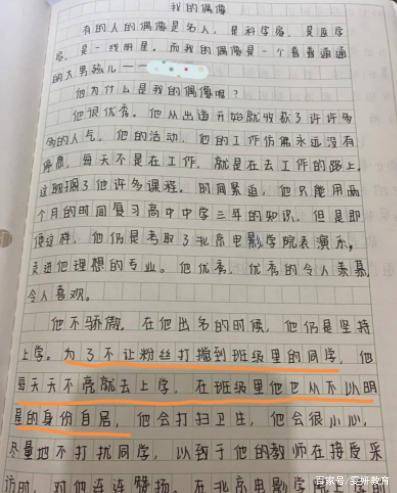 我的偶像
有的人的偶像是名人,是科学家,是医学
家,是一线明星。而我的偶像是一个普普通通
的大男孩儿——
他为什么是我的偶像呢?
他很优秀。他从出道开始就收获了许许多
多的人气。他的活动,他的工作仿佛永远没有
停息,每天不是在工作,就是在去工作的路上。
这耽误了他许多课程。时间紧迫,他只能用两
个月的时间复习高中中学三年的知识。但是即
使这样,他仍是考取了北京电影学院表演系。
走进他理想的专业。他优秀,优秀的令人羡慕,
令人喜欢。
他不骄傲。在他出名的时候,他仍是坚持
上学。为了不让粉丝打扰到班级里的同学,他
每天天不亮就去上学,在班级里他也从不以明
星的身份自居,他会打扫卫生,他会很小心,
尽量地不打扰同学,以致于他的教师在接受采
访时,对他连连赞扬。在北京电影学院上学的
百家号/雯妍教育